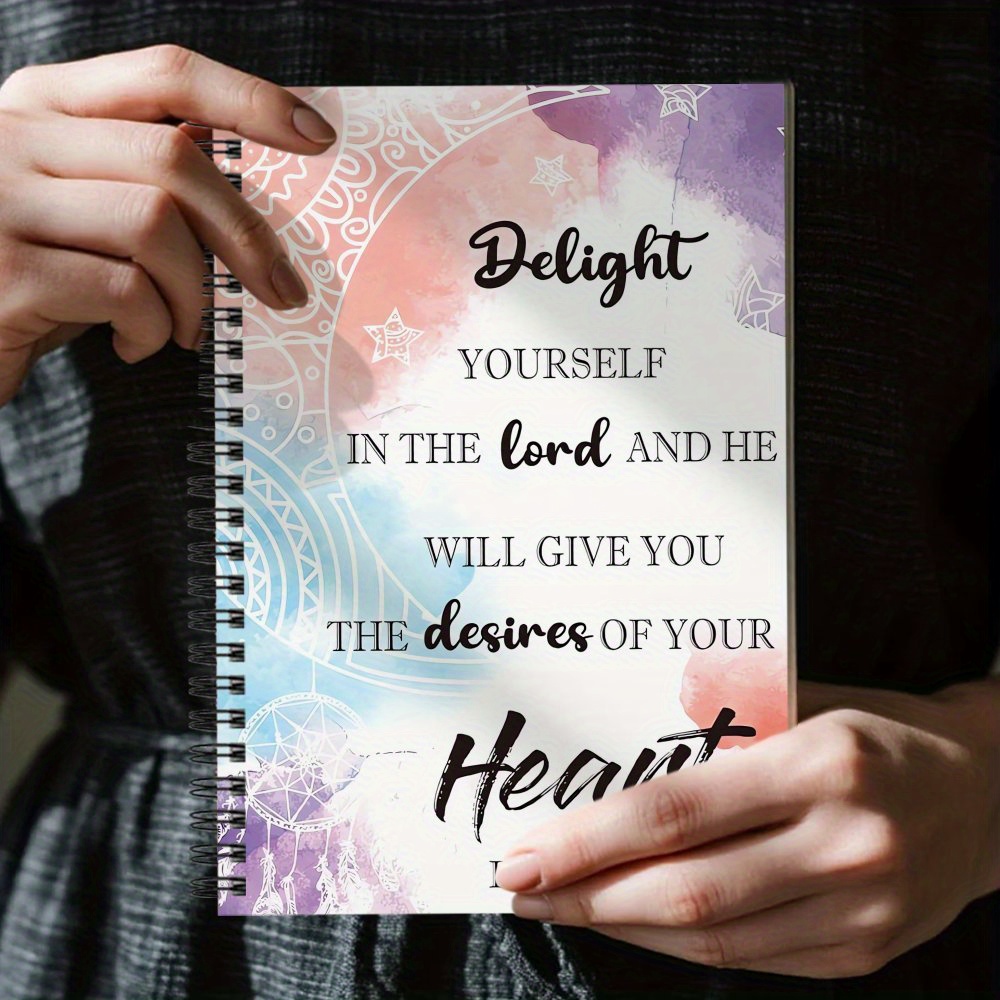 Delight
YOURSELF
IN THE lord AND HE
WILL GIVE YOU
THE desires OF YOUR
Heart